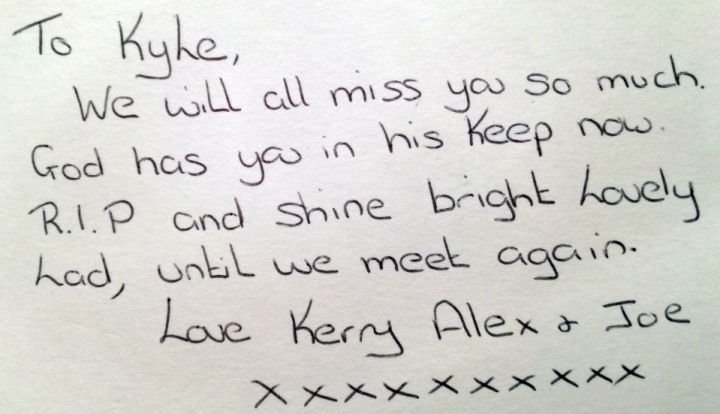 To Kyle,
We will all miss you so much.
God has you in his Keep now.
R.I.P and shine bright Lovely
Lad, until we meet again.
Love Kerry Alex & Joe
xxxxxxxxxx